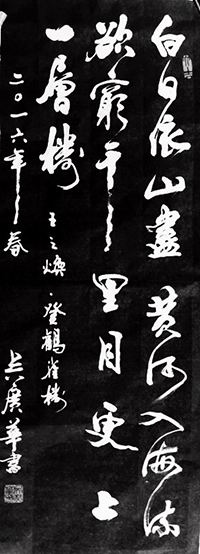 白日依山盡黃河入海流
欲窮千里目更上
一層樓
王之煥·登鶴雀樓
二〇一六年春
吳廣華書